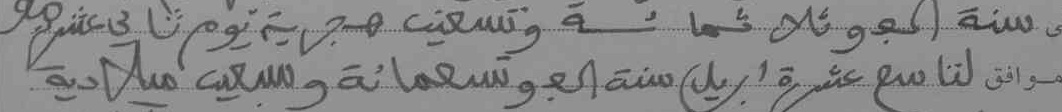 سنة الف وثلاثمائة وتسعين هجرية يوم ثانى عشر صفر
موافق لتاسع عشرة ابريل سنة الف وتسعمائة وسبعين ميلادية